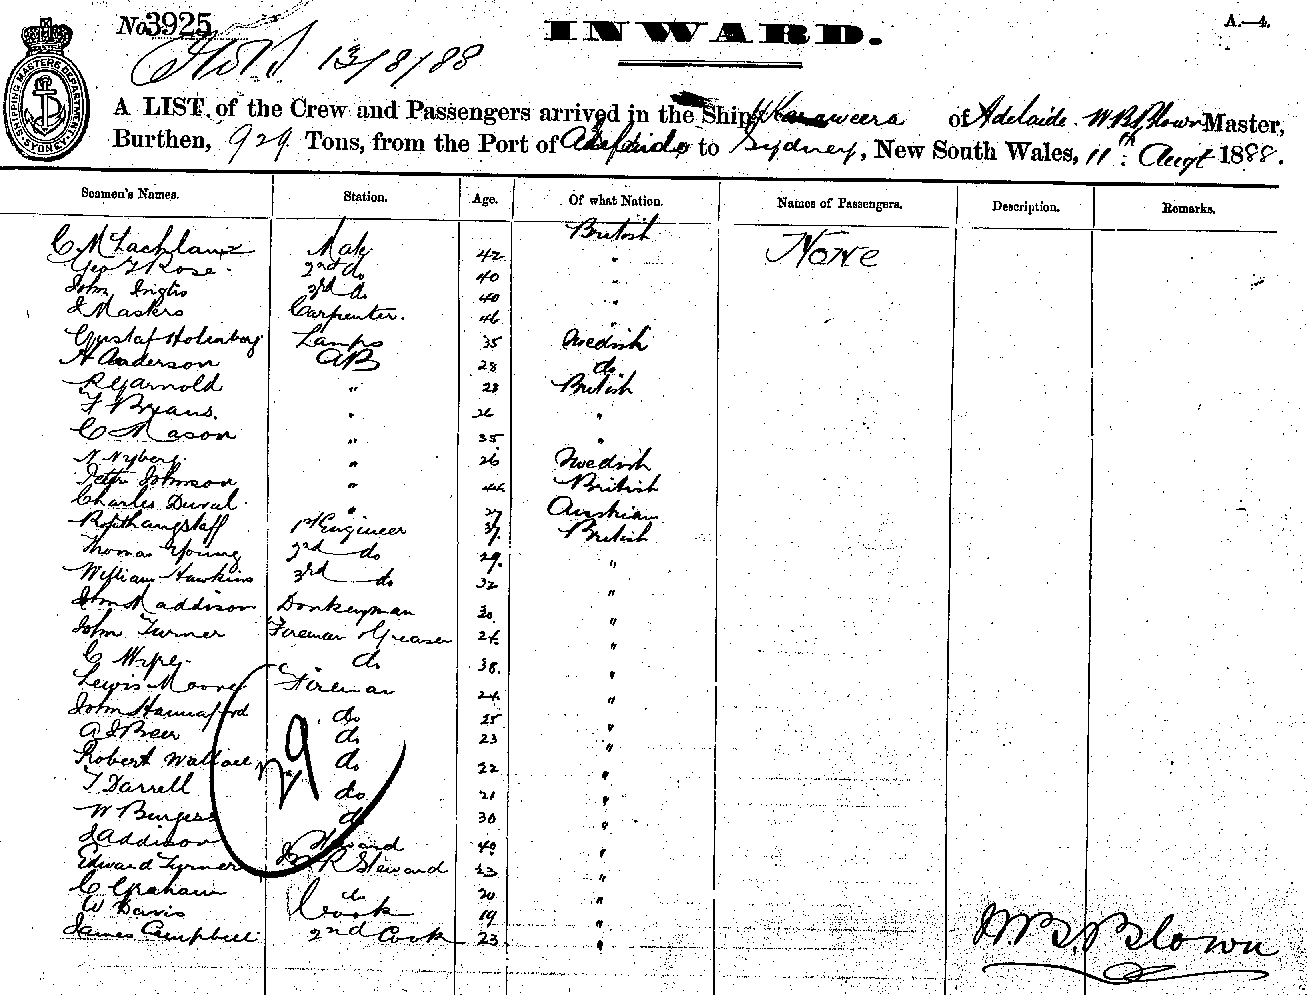 No 3925
INWARD.
A.—4.
13/8/88
SHIPPING MASTERS DEPARTMENT SYDNEY
A LIST of the Crew and Passengers arrived in the Ship of Adelaide. W B Blown Master,
Burthen, 929 Tons, from the Port of Adelaide to Sydney, New South Wales, 11th Augt 1888.
Seamen's Names. Station. Age. Of what Nation. Names of Passengers. Description. Remarks.
C McLachlan Mate 42 British None
Geo Rose. 2nd do 40 "
John Inglis 3rd do 40 "
J Masters Carpenter. 46 "
Gustaf Holmberg Lamps 35 Swedish
H Anderson AB 28 do
Arnold " 28 British
F Bryans. " 26 "
C Mason " 35 "
N Nyberg. " 26 Swedish
Peter Johnson " 44 British
Charles Duval " 27 Austrian
1st Engineer 37. British
Thomas Young 2nd do 29. "
William Hawkins 3rd do 32 "
John Maddison Donkeyman 30. "
John Turner Fireman & Greaser 24. "
C do 38. "
Lewis Moore Fireman 24. "
John Hannaford do 25 "
A J Beer do 23 "
Robert Wallace do 22 "
T Darrell do 21 "
W Burgess do 30 "
J Addison Steward 40 "
Edward Turner Steward 23 "
C Graham do 20 "
W Davis Cook 19 "
James Campbell 2nd Cook 23. "
29
W B. Blown